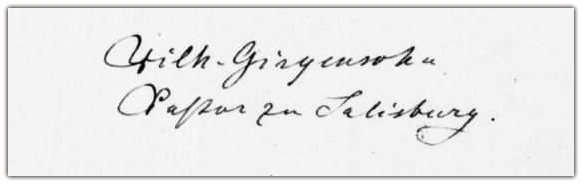 Wilh. Girgensohn
Pastor zu Salisburg.